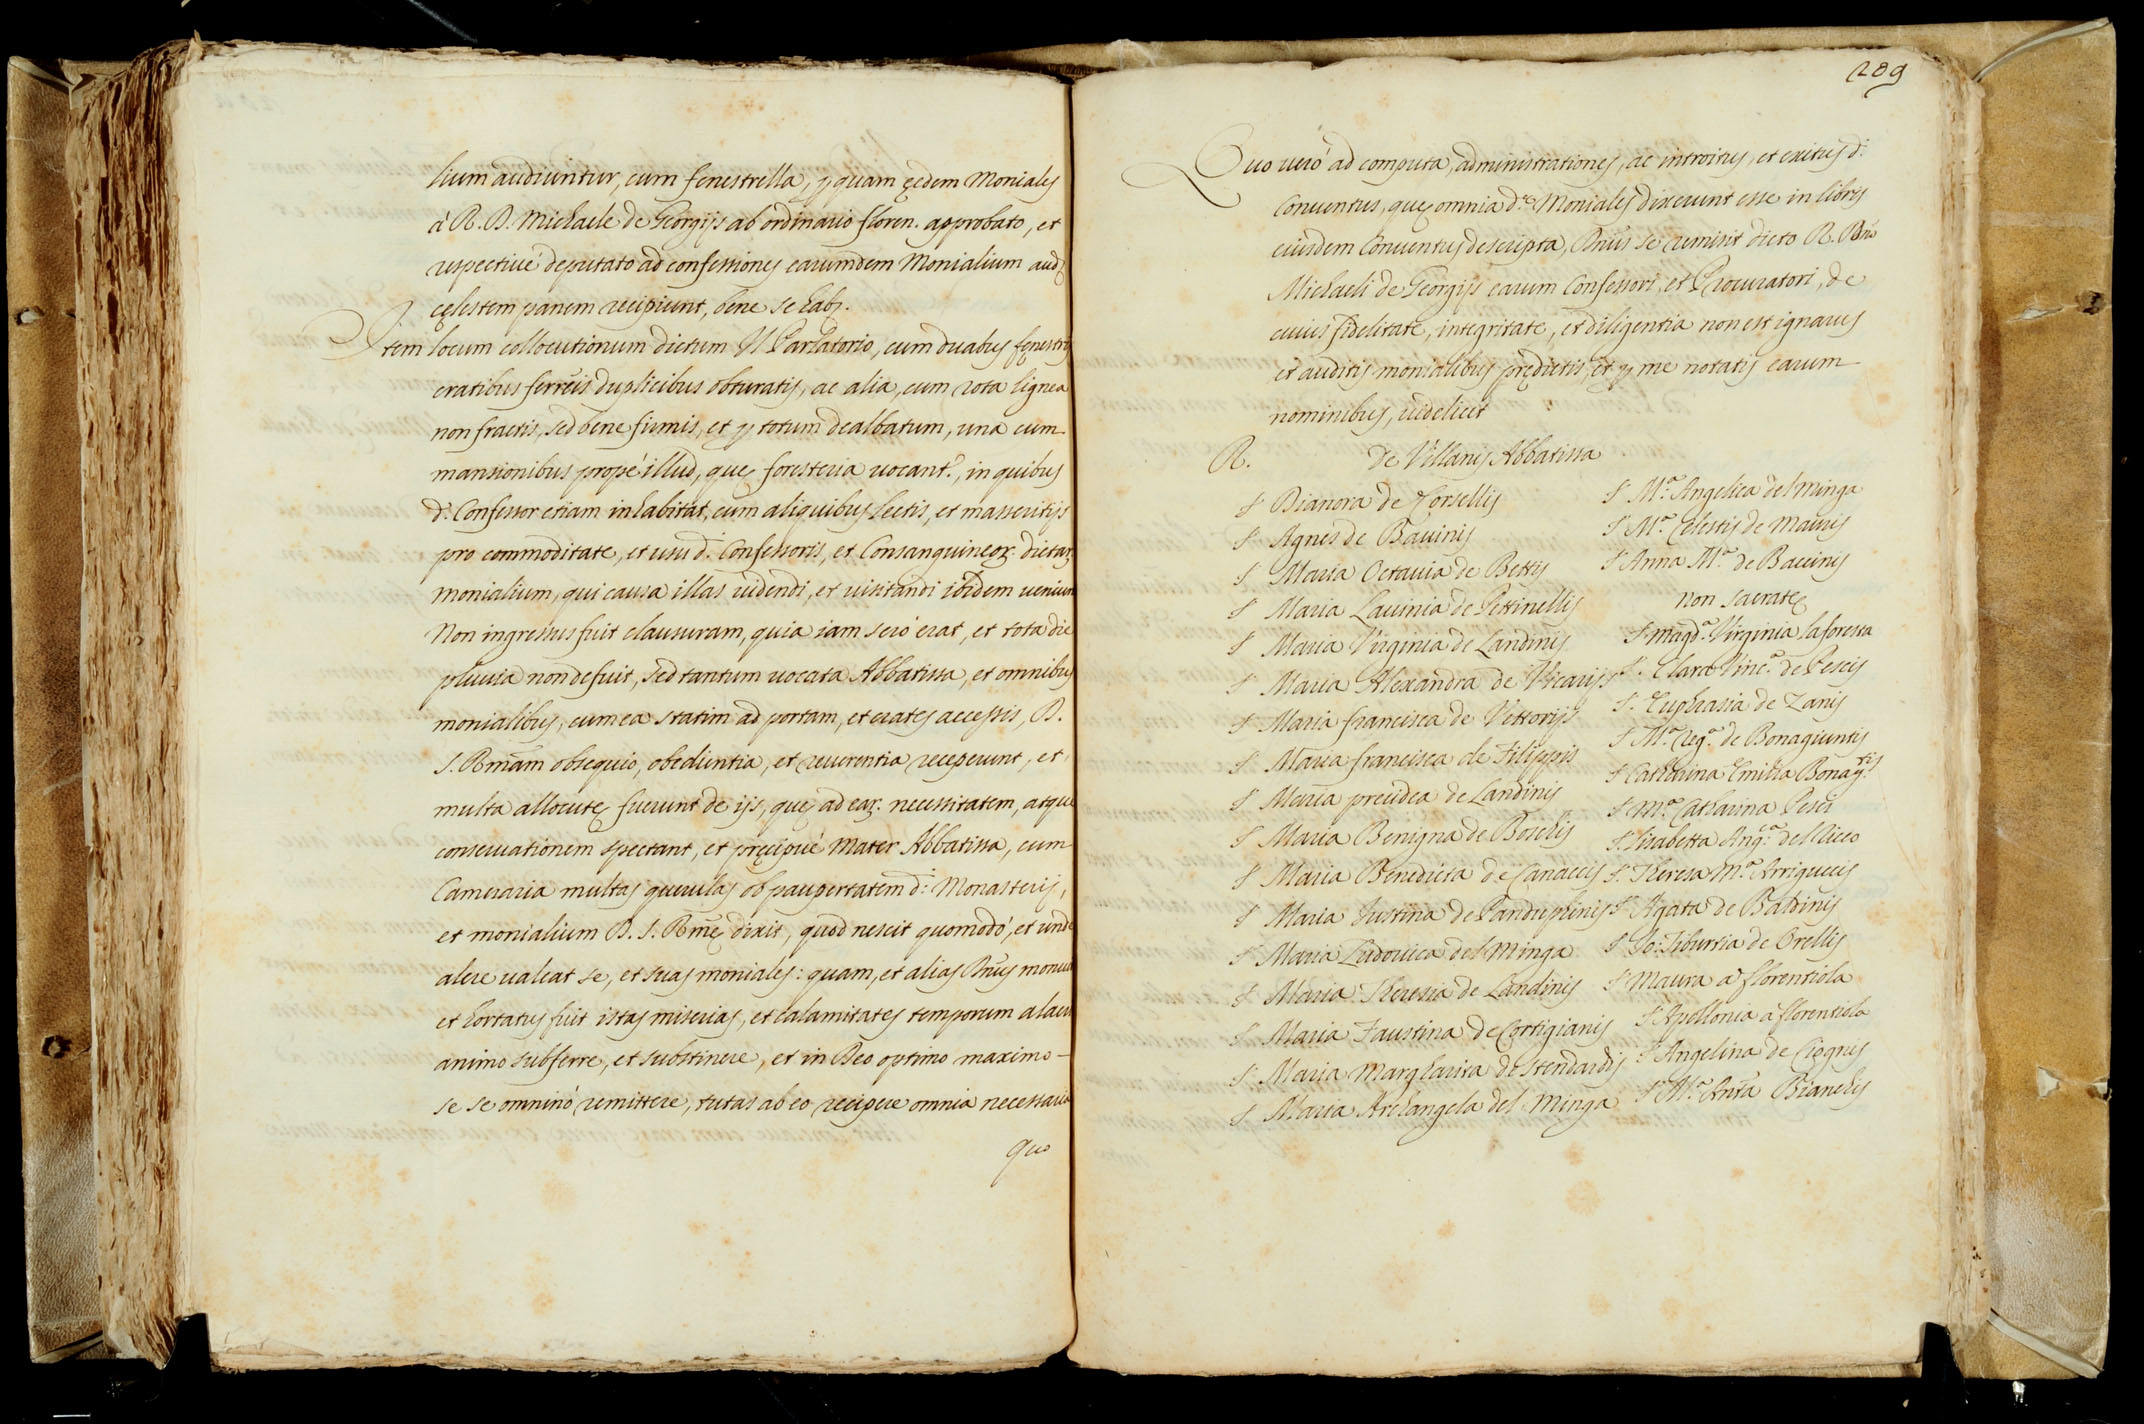 lium audiuntur, cum fenestrella, p quam ęedem Moniales
à R. D. Michaele de Georgijs ab ordinario floren. approbato, et
respectiuè deputato ad confessiones earumdem Monialium aud
cęlestem panem recipiunt, bene se hab.
Item locum collocutionum dictum Il Parlatorio, cum duabus fenestris
cratibus ferreis duplicibus obturatis, ac alia, cum rota lignea
non fractis, sed bene firmis, et p totum dealbatum, una cum
mansionibus propè illud, quę foresteria uocant.r, in quibus
d. Confessor etiam inhabitat, cum aliquibus lectis, et masseritijs
pro commoditate, et usu d. Confessoris, et Consanguineor. dictar.
monialium, qui causa illas uidendi, et uisitandi ibidem ueniun
Non ingressus fuit clausuram, quia iam serò erat, et tota die
pluuia non defuit, sed tantum uocata Abbatissa, et omnibus
monialibus, cum ea statim ad portam, et crates accessis, D.
S. Rmãm obsequio, obedientia, et reuerentia receperunt, et
multa allocutę fuerunt de ijs, quę ad ear. necessitatem, atque
conseruationem spectant, et pręcipuè Mater Abbatissa, cum
Cameraria multas querulas ob paupertatem d. Monasterij,
et monialium D. S. Rmę dixit, quod nescit quomodò, et unde
alere ualeat se, et suas moniales: quam, et alias Dnus monuit
et hortatus fuit istas miserias, et calamitates temporum alacri
animo subferre, et substinere, et in Deo optimo maximo
se se omninò remittere, tutas ab eo recipere omnia necessaria
quo
209
Quo uerò ad computa, administrationes, ac introitus, et exitus d.
Conuentus, quę omnia d.tę Moniales dixerunt esse in libris
eiusdem Conuentus descripta, Dnus se remisit dicto R. Dno
Michaeli de Georgijs earum Confessori, et Procuratori, de
cuius fidelitate, integritate, et diligentia non est ignarus
et auditis monialibus prędictis, et p me notatis earum
nominibus, uidelicet
R. de Villanis Abbatissa
S. Dianora de Corsellis
S. Agnes de Bauinis
S. Maria Octauia de Bettis
S. Maria Lauinia de Pettinellis
S. Maria Virginia de Landinis
S. Maria Alexandra de Vicarijs
S. Maria francisca de Vettorijs
S. Maria francisca de Filippis
S. Maria preudea de Landinis
S. Maria Benigna de Boschis
S. Maria Benedicta de Canaccis
S. Maria Iustina de Panduphinis
S. Maria Ludouica del Minga
S. Maria Theresia de Landinis
S. Maria Faustina de Cortigianis
S. Maria Margharita de Stendardis
S. Maria Archangela del Minga
S. M.a Angelica del Minga
S. M.a Celestis de Mainis
S. Anna M.a de Baccinis
Non sacratę
S. Magd.a Virginia la foressa
S. Clara Vinc.a de Pescis
S. Euphrasia de Zanis
S. M.a Reg.a de Bonagiuntis
S. Catharina Emilia Bonag.tis
S. M.a Catharina Pesci
S. Lisabetta Ang.ca del Riceo
S. Theresa M.a Arriguccis
S. Agata de Baldinis
S. Io: Tiburtia de Orellis
S. Maura à florentiola
S. Apollonia à florentiola
S. Angelina de Ciognis
S. M.a Anta Bianchis